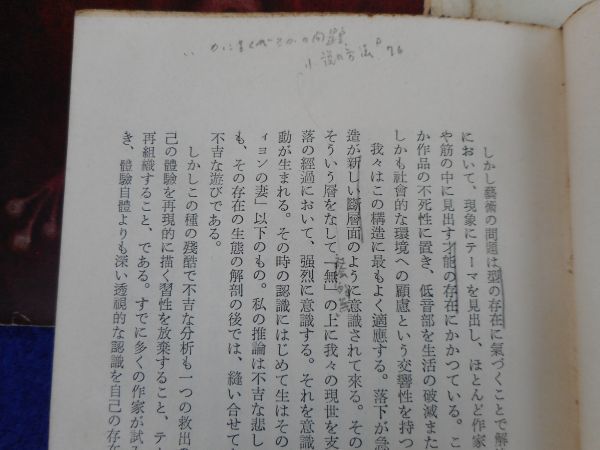 小説の方法 76
しかし藝術の問題は型の存在に氣づくことで解
において、現象にテーマを見出し、ほとんど作家
や筋の中に見出す才能の存在にかかつている。こ
か作品の不死性に置き、低音部を生活の破滅また
しかも社會的な環境への顧慮という交響性を持つ
我々はこの構造に最もよく適應する。落下が急
造が新しい斷層面のように意識されて來る。その
そういう層をなして「無」の上に我々の現世を支
落の經過において、强烈に意識する。それを意識
動が生まれる。その時の認識にはじめて生はその
ィヨンの妻」以下のもの。私の推論は不吉な悲し
も、その存在の生態の解剖の後では、縫い合せて
不吉な遊びである。
しかしこの種の殘酷で不吉な分析も一つの救出の
己の體驗を再現的に描く習性を放棄すること、テ
再組織すること、である。すでに多くの作家が試
き、體驗自體よりも深い透視的な認識を自己の存在